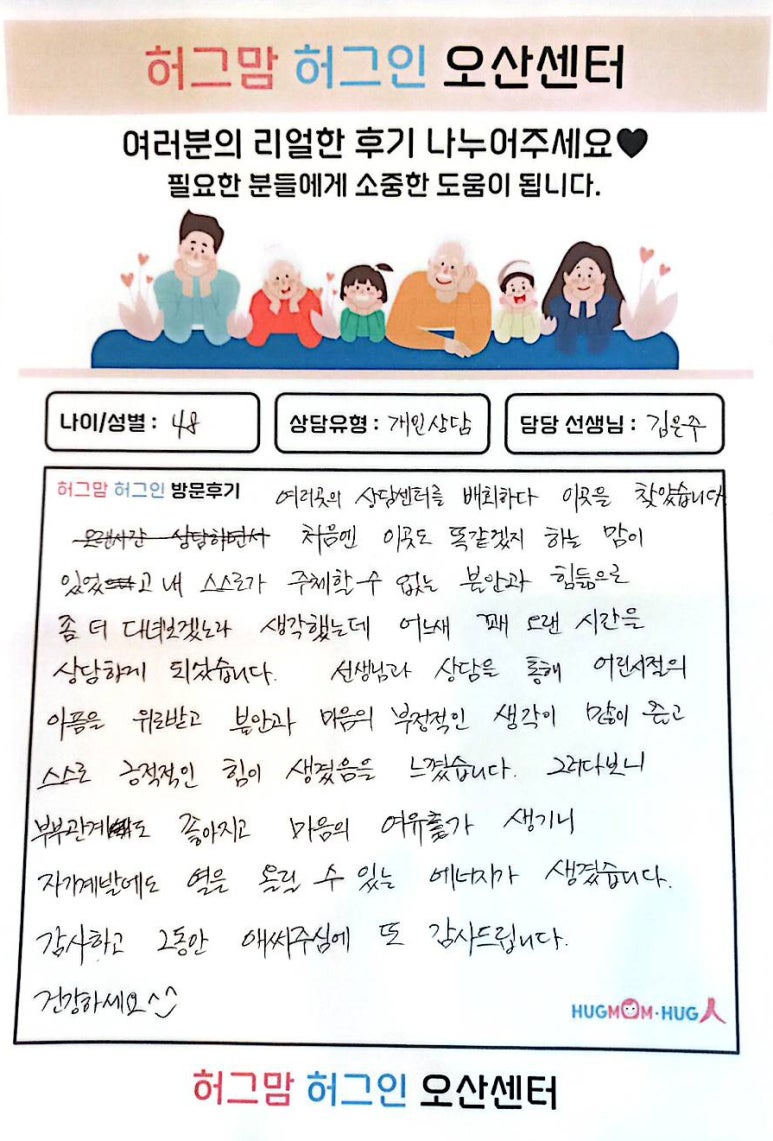 허그맘 허그인 오산센터
여러분의 리얼한 후기 나누어주세요♥
필요한 분들에게 소중한 도움이 됩니다.
나이/성별 : 48 상담유형 : 개인상담 담당 선생님 : 김은주
허그맘 허그인 방문후기 여러곳의 상담센터를 배회하다 이곳을 찾았습니다
오랜시간 상담하면서 처음엔 이곳도 똑같겠지 하는 맘이
있었고 내 스스로가 주체할 수 없는 불안과 힘듦으로
좀 더 다녀보겠노라 생각했는데 어느새 꽤 오랜 시간을
상담하게 되었습니다. 선생님과 상담을 통해 어린시절의
아픔을 위로받고 불안과 마음의 부정적인 생각이 많이 줄고
스스로 긍적적인 힘이 생겼음을 느꼈습니다. 그러다보니
부부관계도 좋아지고 마음의 여유가 생기니
자기계발에도 열을 올릴 수 있는 에너지가 생겼습니다.
감사하고 그동안 애써주심에 또 감사드립니다.
건강하세요^^
HUGMOM·HUG人
허그맘 허그인 오산센터